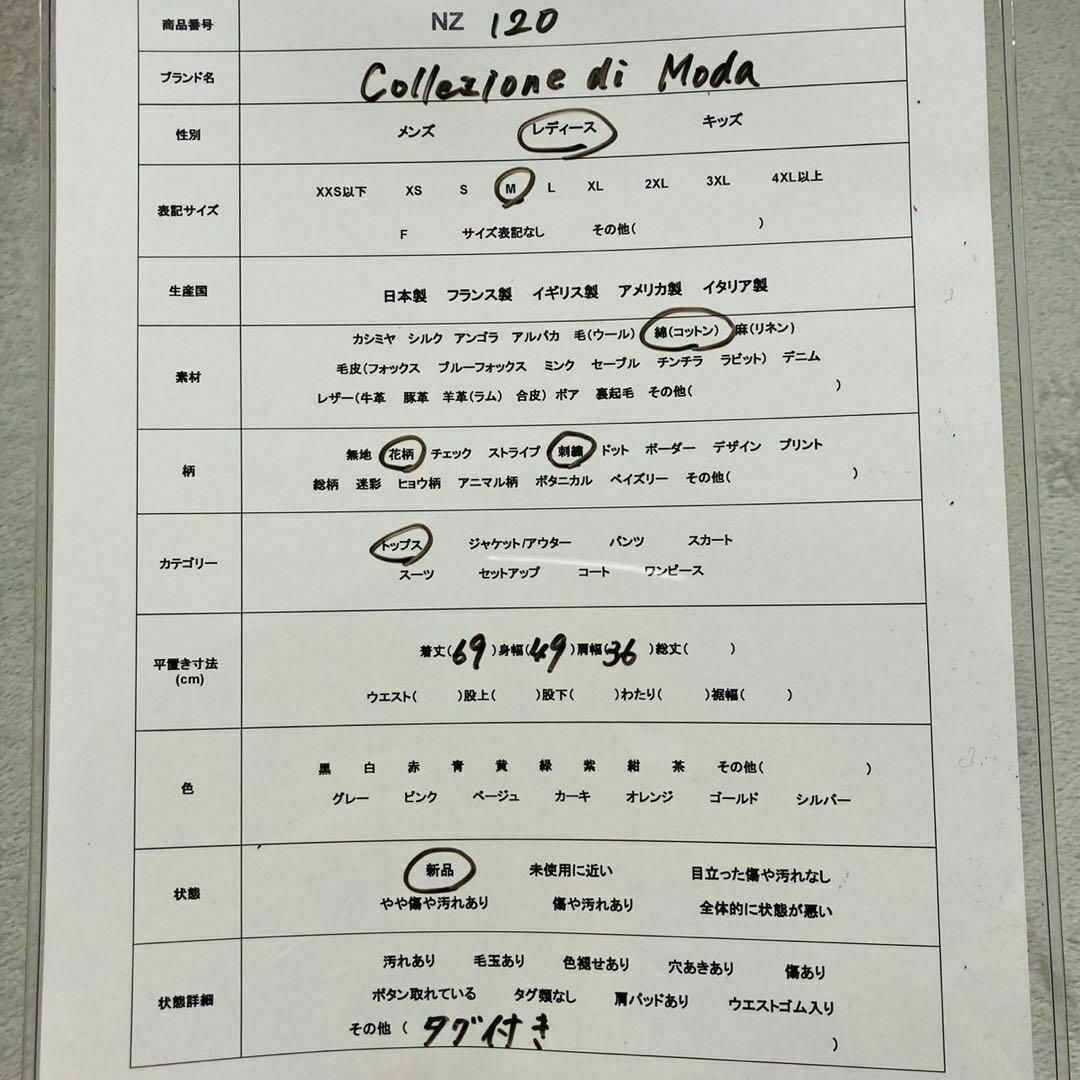 商品番号 NZ 120
ブランド名 Collezione di Moda
性別 メンズ レディース キッズ
表記サイズ XXS以下 XS S M L XL 2XL 3XL 4XL以上
F サイズ表記なし その他( )
生産国 日本製 フランス製 イギリス製 アメリカ製 イタリア製
素材 カシミヤ シルク アンゴラ アルパカ 毛(ウール) 綿(コットン) 麻(リネン)
毛皮(フォックス ブルーフォックス ミンク セーブル チンチラ ラビット) デニム
レザー(牛革 豚革 羊革(ラム) 合皮) ボア 裏起毛 その他( )
柄 無地 花柄 チェック ストライプ 刺繍 ドット ボーダー デザイン プリント
総柄 迷彩 ヒョウ柄 アニマル柄 ボタニカル ペイズリー その他( )
カテゴリー トップス ジャケット/アウター パンツ スカート
スーツ セットアップ コート ワンピース
平置き寸法 (cm) 着丈(69)身幅(49)肩幅(36)総丈( )
ウエスト( )股上( )股下( )わたり( )裾幅( )
色 黒 白 赤 青 黄 緑 紫 紺 茶 その他( )
グレー ピンク ベージュ カーキ オレンジ ゴールド シルバー
状態 新品 未使用に近い 目立った傷や汚れなし
やや傷や汚れあり 傷や汚れあり 全体的に状態が悪い
状態詳細 汚れあり 毛玉あり 色褪せあり 穴あきあり 傷あり
ボタン取れている タグ類なし 肩パッドあり ウエストゴム入り
その他 ( タグ付き )